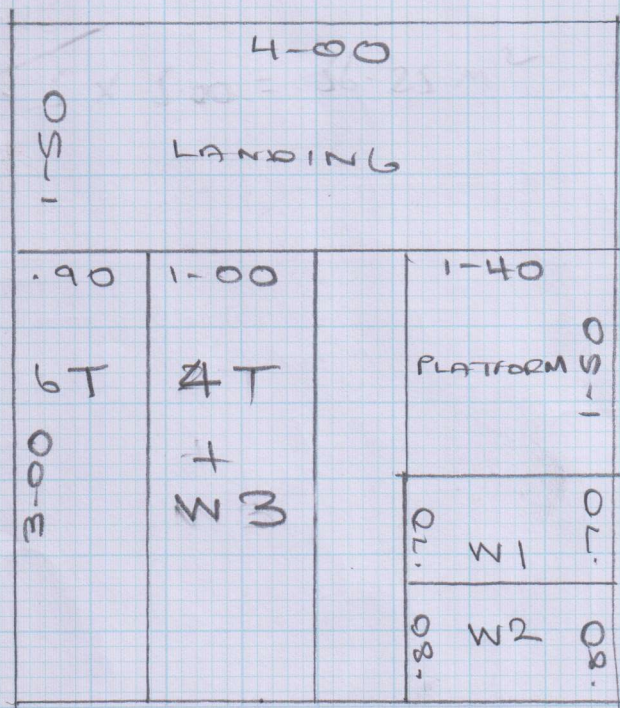 4-00
1-50
LANDING
.90
1-00
1-40
6T
4T
+
W3
3-00
PLATFORM
1-50
.70
W1
.70
.80
W2
.80